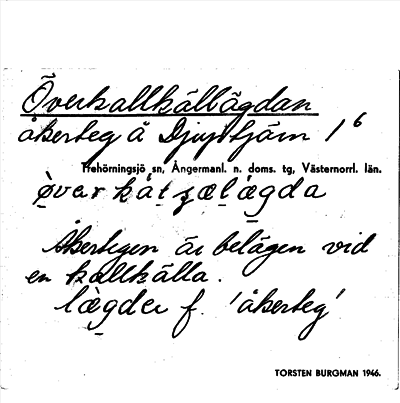 Överkallkällägdan
åkerteg å Djuptjärn 1⁶
Trehörningsjö sn, Ångermanl. n. doms. tg, Västernorrl. län.
Åkertegen är belägen vid
en kallkälla.
lägder f. 'åkerteg'
TORSTEN BURGMAN 1946.